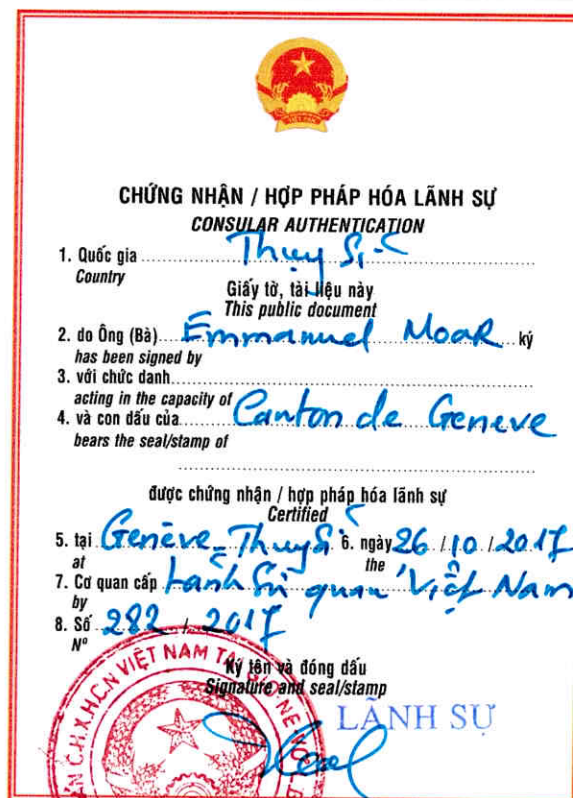 CHỨNG NHẬN / HỢP PHÁP HÓA LÃNH SỰ
CONSULAR AUTHENTICATION
1. Quốc gia Thụy Sĩ
Country
Giấy tờ, tài liệu này
This public document
2. do Ông (Bà) Emmanuel MoaR ký
has been signed by
3. với chức danh
acting in the capacity of
4. và con dấu của Canton de Geneve
bears the seal/stamp of
được chứng nhận / hợp pháp hóa lãnh sự
Certified
5. tại Genève - Thụy Sĩ 6. ngày 26 / 10 / 2017
at the
7. Cơ quan cấp Lãnh Sự quán Việt Nam
by
8. Số 282 / 2017
N°
Ký tên và đóng dấu
Signature and seal/stamp
LÃNH SỰ
C.H.X.H.C.N VIỆT NAM TẠI